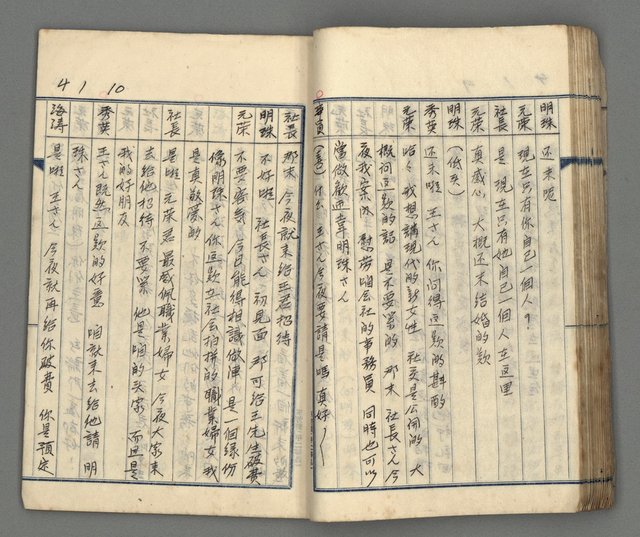 明珠 还未呢
元荣 現在只有你自己一個人？
社長 是 現在只有她自己一個人在這里
元荣 真感心 大概还未结婚的款
明珠 (低笑)
秀英 还未啦 王さん 你问得這款的斟酌
元荣 哈々 我想講現代的新女性 社交是公開的 大
概问這款的話 是不要緊的 那末 社長さん今
夜我案内 慰劳咱会社的事務員 同時也可以
當做歡迎韋明珠さん
事員 什么 王さん今夜要請是嗎 真好
社長 那末 今夜就来给王君招待
明珠 不好啦 社長さん 初見面 那可给王先生破費
元荣 不要客气 今日能得相識做陣 是一個緣份
像明珠さん 你這款立社会拍拼的職業婦女 我
是真敬愛的
社長 是啦 元荣君 最感佩職業婦女 今夜大家来
去给他招待 不要緊 他是咱的头家 而且是
我的好朋友
秀英 王さん 既然這款的好意 咱就来去给他請 明
珠さん
海濤 是啦 王さん 今夜就再给你破費 你是預定
4 1 10